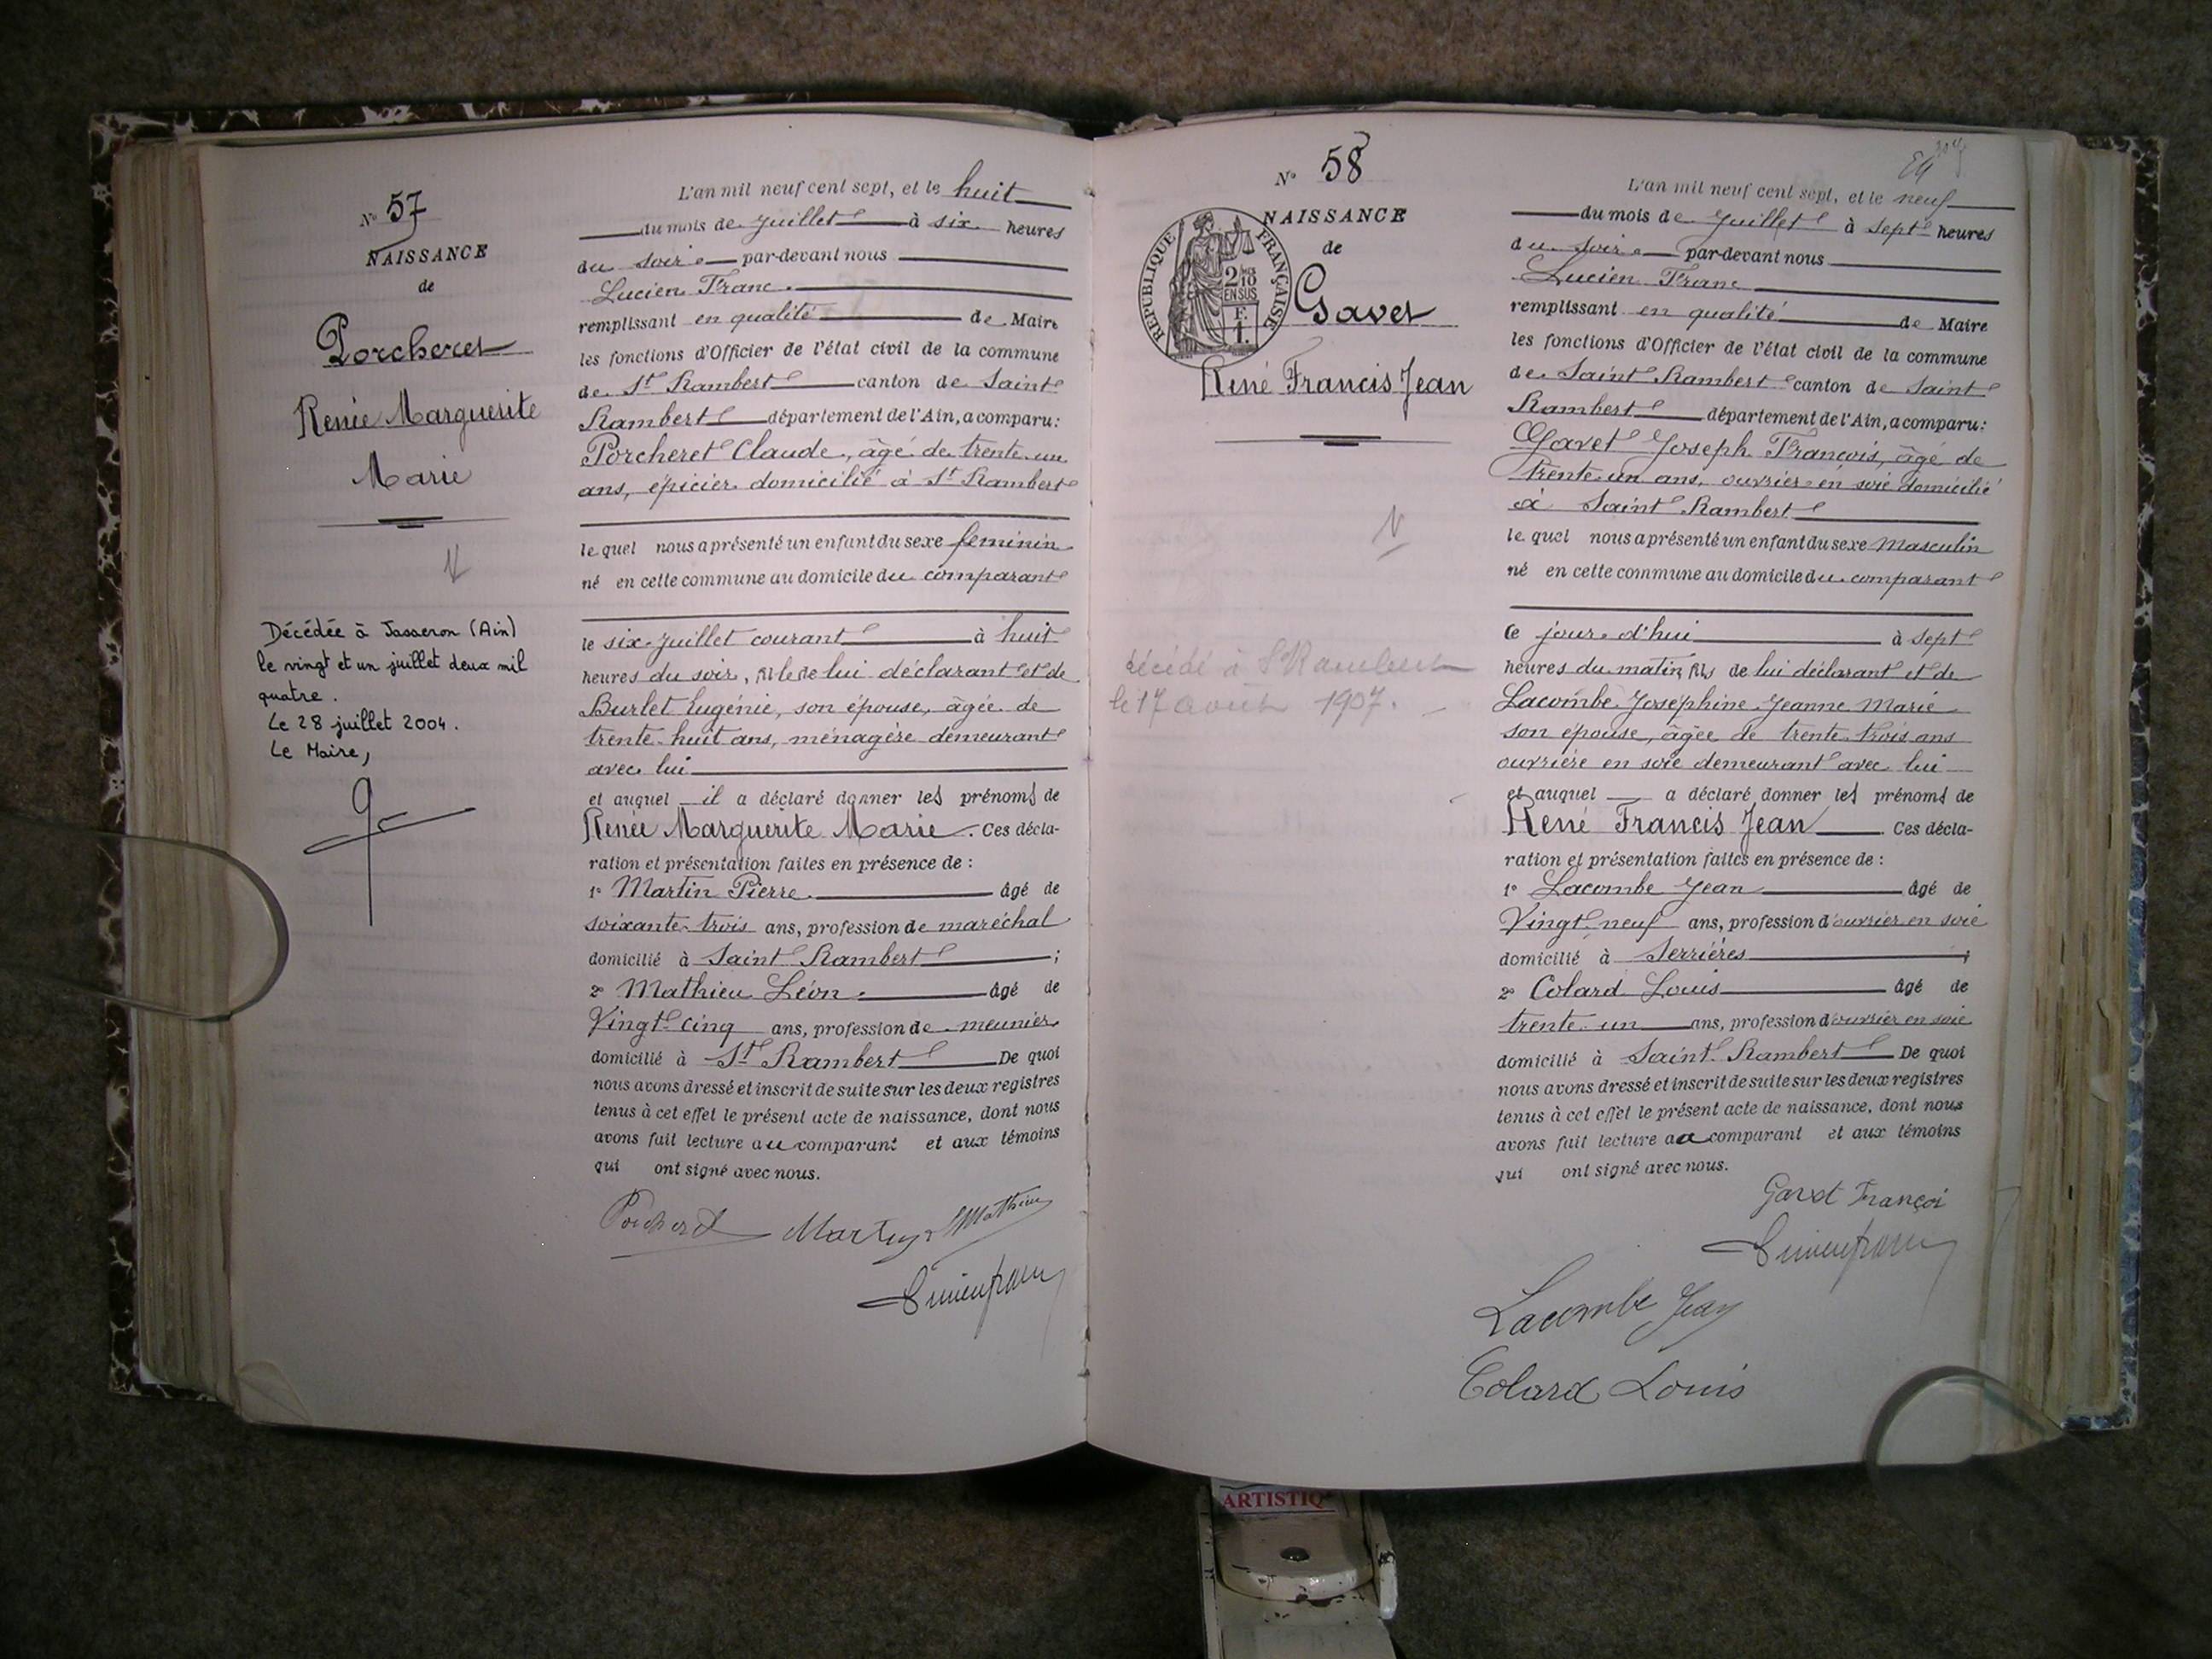 Nº 57
NAISSANCE
de
Porcheret
Renée Marguerite
Marie
Décédée à Jasseron (Ain)
le vingt et un juillet deux mil
quatre.
Le 28 juillet 2004.
Le Maire,
L'an mil neuf cent sept, et le huit
du mois de Juillet à six heures
du soir par-devant nous
Lucien Franc
remplissant en qualité de Maire
les fonctions d'Officier de l'état civil de la commune
de St Rambert canton de Saint
Rambert département de l'Ain, a comparu:
Porcheret Claude, âgé de trente-un
ans, épicier domicilié à St Rambert
le quel nous a présenté un enfant du sexe feminin
né en cette commune au domicile du comparant
le six juillet courant à huit
heures du soir, fille de lui déclarant et de
Burlet Eugénie, son épouse, âgée de
trente-huit ans, ménagère demeurant
avec lui
et auquel il a déclaré donner les prénoms de
Renée Marguerite Marie. Ces décla-
ration et présentation faites en présence de :
1º Martin Pierre âgé de
soixante-trois ans, profession de maréchal
domicilié à Saint Rambert ;
2º Mathieu Léon âgé de
Vingt-cinq ans, profession de meunier
domicilié à St Rambert De quoi
nous avons dressé et inscrit de suite sur les deux registres
tenus à cet effet le présent acte de naissance, dont nous
avons fait lecture au comparant et aux témoins
qui ont signé avec nous.
Porcheret Martin Mathieu
Nº 58
NAISSANCE
de
RÉPUBLIQUE FRANÇAISE
2/10
EN SUS
F.
1.
Gavet
René Francis Jean
décédé à St Rambert
le 17 Août 1907.
L'an mil neuf cent sept, et le neuf
du mois de Juillet à sept heures
du soir par-devant nous
Lucien Franc
remplissant en qualité de Maire
les fonctions d'Officier de l'état civil de la commune
de Saint Rambert canton de Saint
Rambert département de l'Ain, a comparu:
Gavet Joseph François, âgé de
trente-un ans, ouvrier en soie domicilié
à Saint Rambert
le quel nous a présenté un enfant du sexe Masculin
né en cette commune au domicile du comparant
ce jour d'hui à sept
heures du matin, fils de lui déclarant et de
Lacombe Joséphine Jeanne Marie
son épouse, âgée de trente-trois ans
ouvrière en soie demeurant avec lui
et auquel a déclaré donner les prénoms de
René Francis Jean . Ces décla-
ration et présentation faites en présence de :
1º Lacombe Jean âgé de
Vingt-neuf ans, profession d'ouvrier en soie
domicilié à Serrières ;
2º Colard Louis âgé de
trente-un ans, profession d'ouvrier en soie
domicilié à Saint Rambert De quoi
nous avons dressé et inscrit de suite sur les deux registres
tenus à cet effet le présent acte de naissance, dont nous
avons fait lecture au comparant et aux témoins
qui ont signé avec nous.
Gavet Françoi
Lacombe Jean
Colard Louis
ARTISTIQ